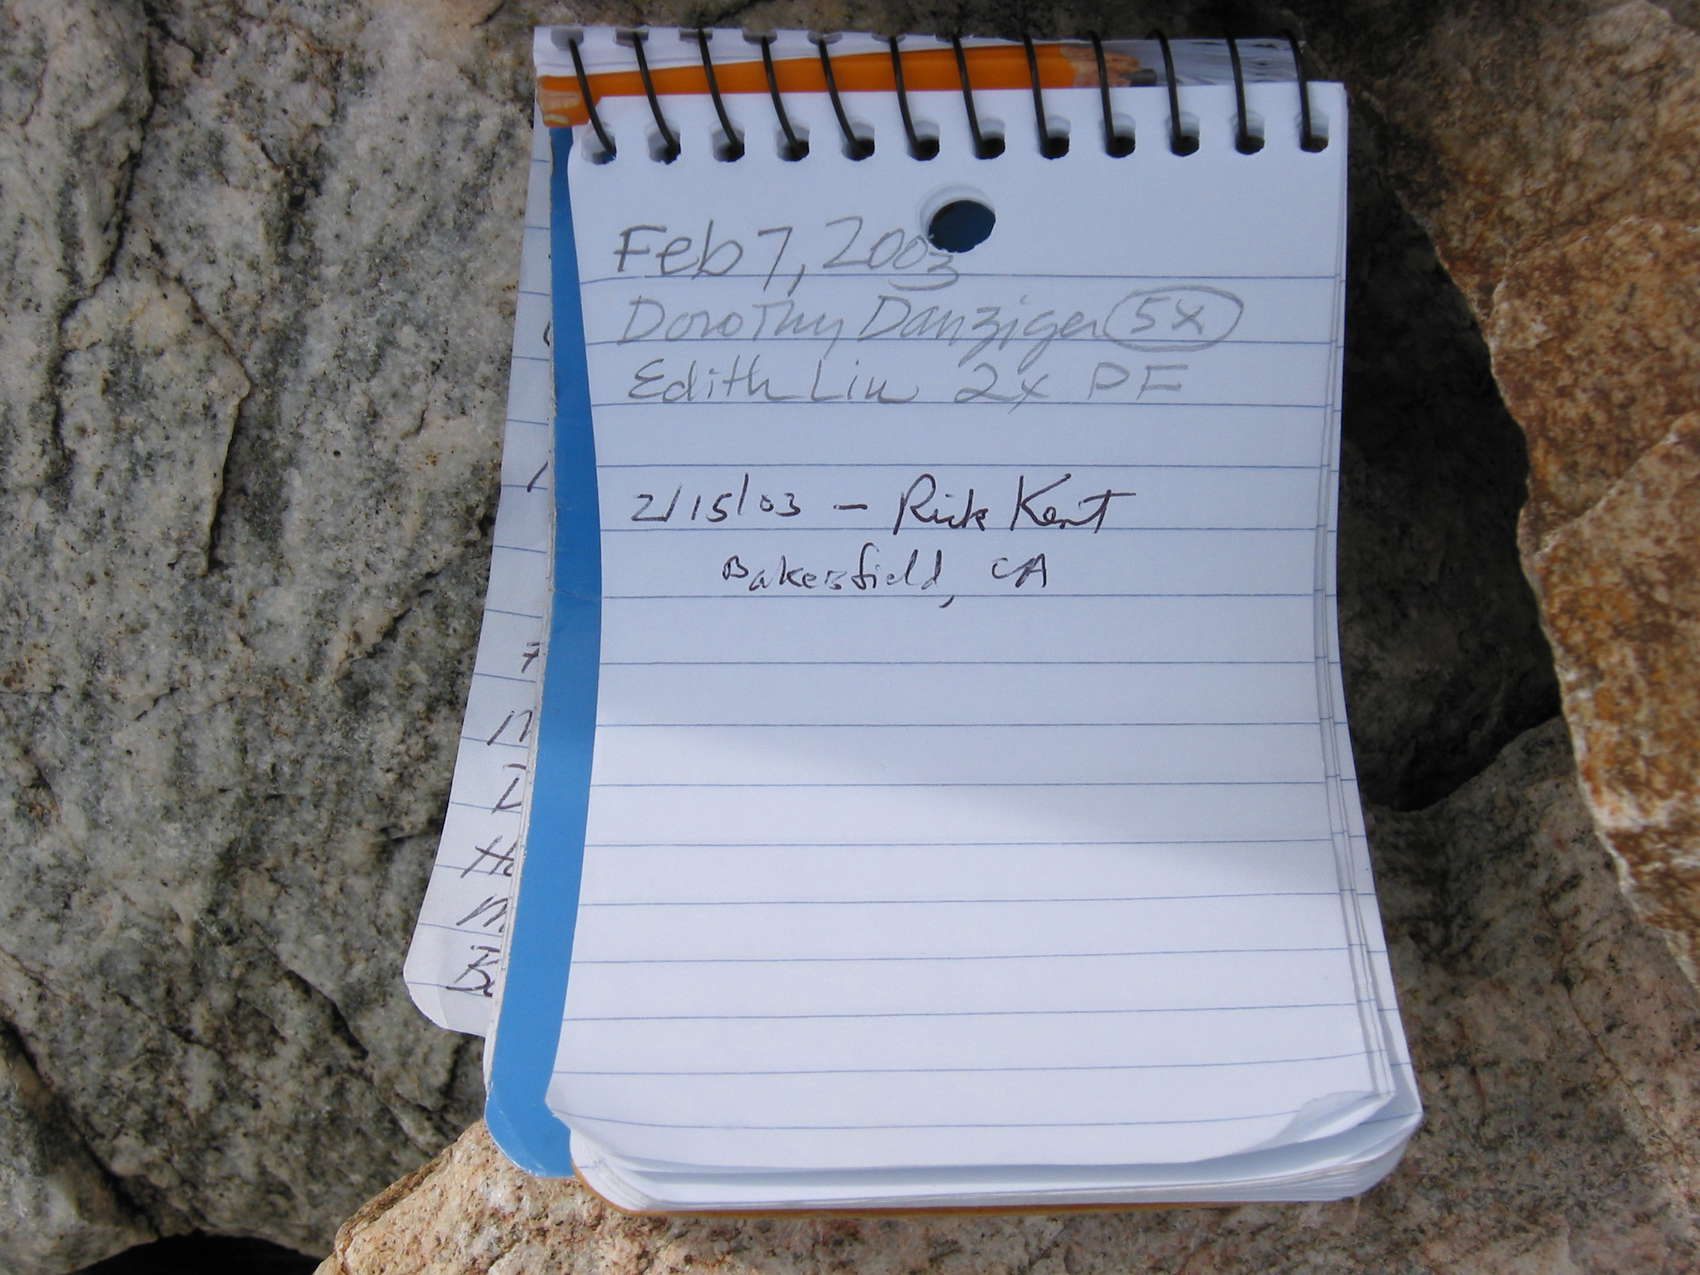 Feb 7, 2003
Dorothy Danziger 5x
Edith Liu 2x PF
2/15/03 – Rick Kent
Bakersfield, CA